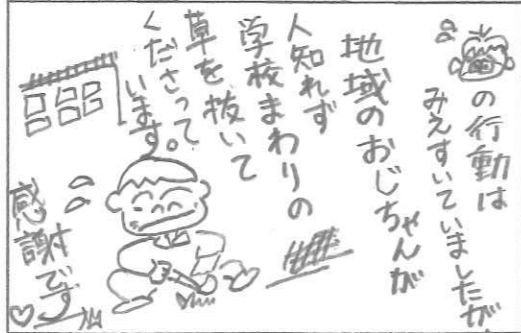 の行動は
みえすいていましたが
地域のおじちゃんが
人知れず
学校まわりの
草を抜いて
くださって
います。
感謝です